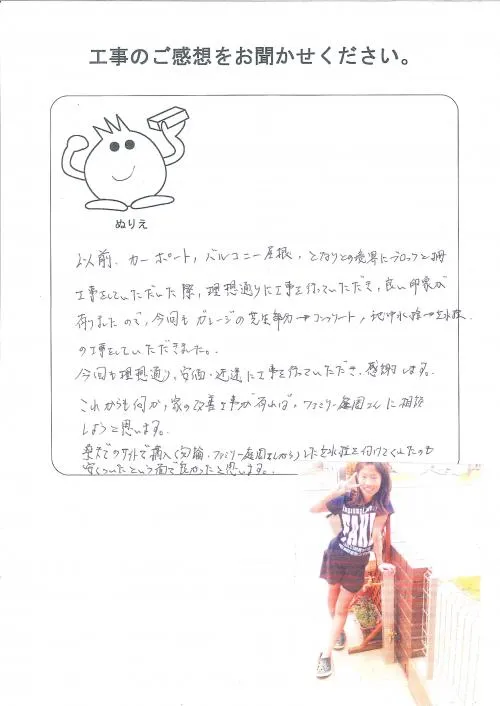 工事のご感想をお聞かせください。
ぬりえ
以前、カーポート、バルコニー屋根、となりとの境界にブロックと柵
工事をしていただいた際、理想通りに工事を行っていただき、良い印象が
有りましたので、今回もガレージの芝生部分→コンクリート、地中水栓→立水栓
の工事をしていただきました。
今回も理想通り、安価・迅速に工事を行っていただき、感謝します。
これからも何か、家の改善工事が有れば、ファミリー庭園さんに相談
しようと思います。
のサイトで購入(勿論、ファミリー庭園さんから)した立水栓を付けてくれたのも
安くついたという面で良かったと思います。